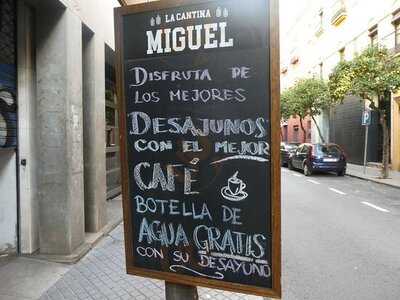 LA CANTINA
MIGUEL
DISFRUTA DE
LOS MEJORES
DESAJUNOS
CON EL MEJOR
CAFÉ
BOTELLA DE
AGUA GRATIS
CON SU DESAYUNO
P